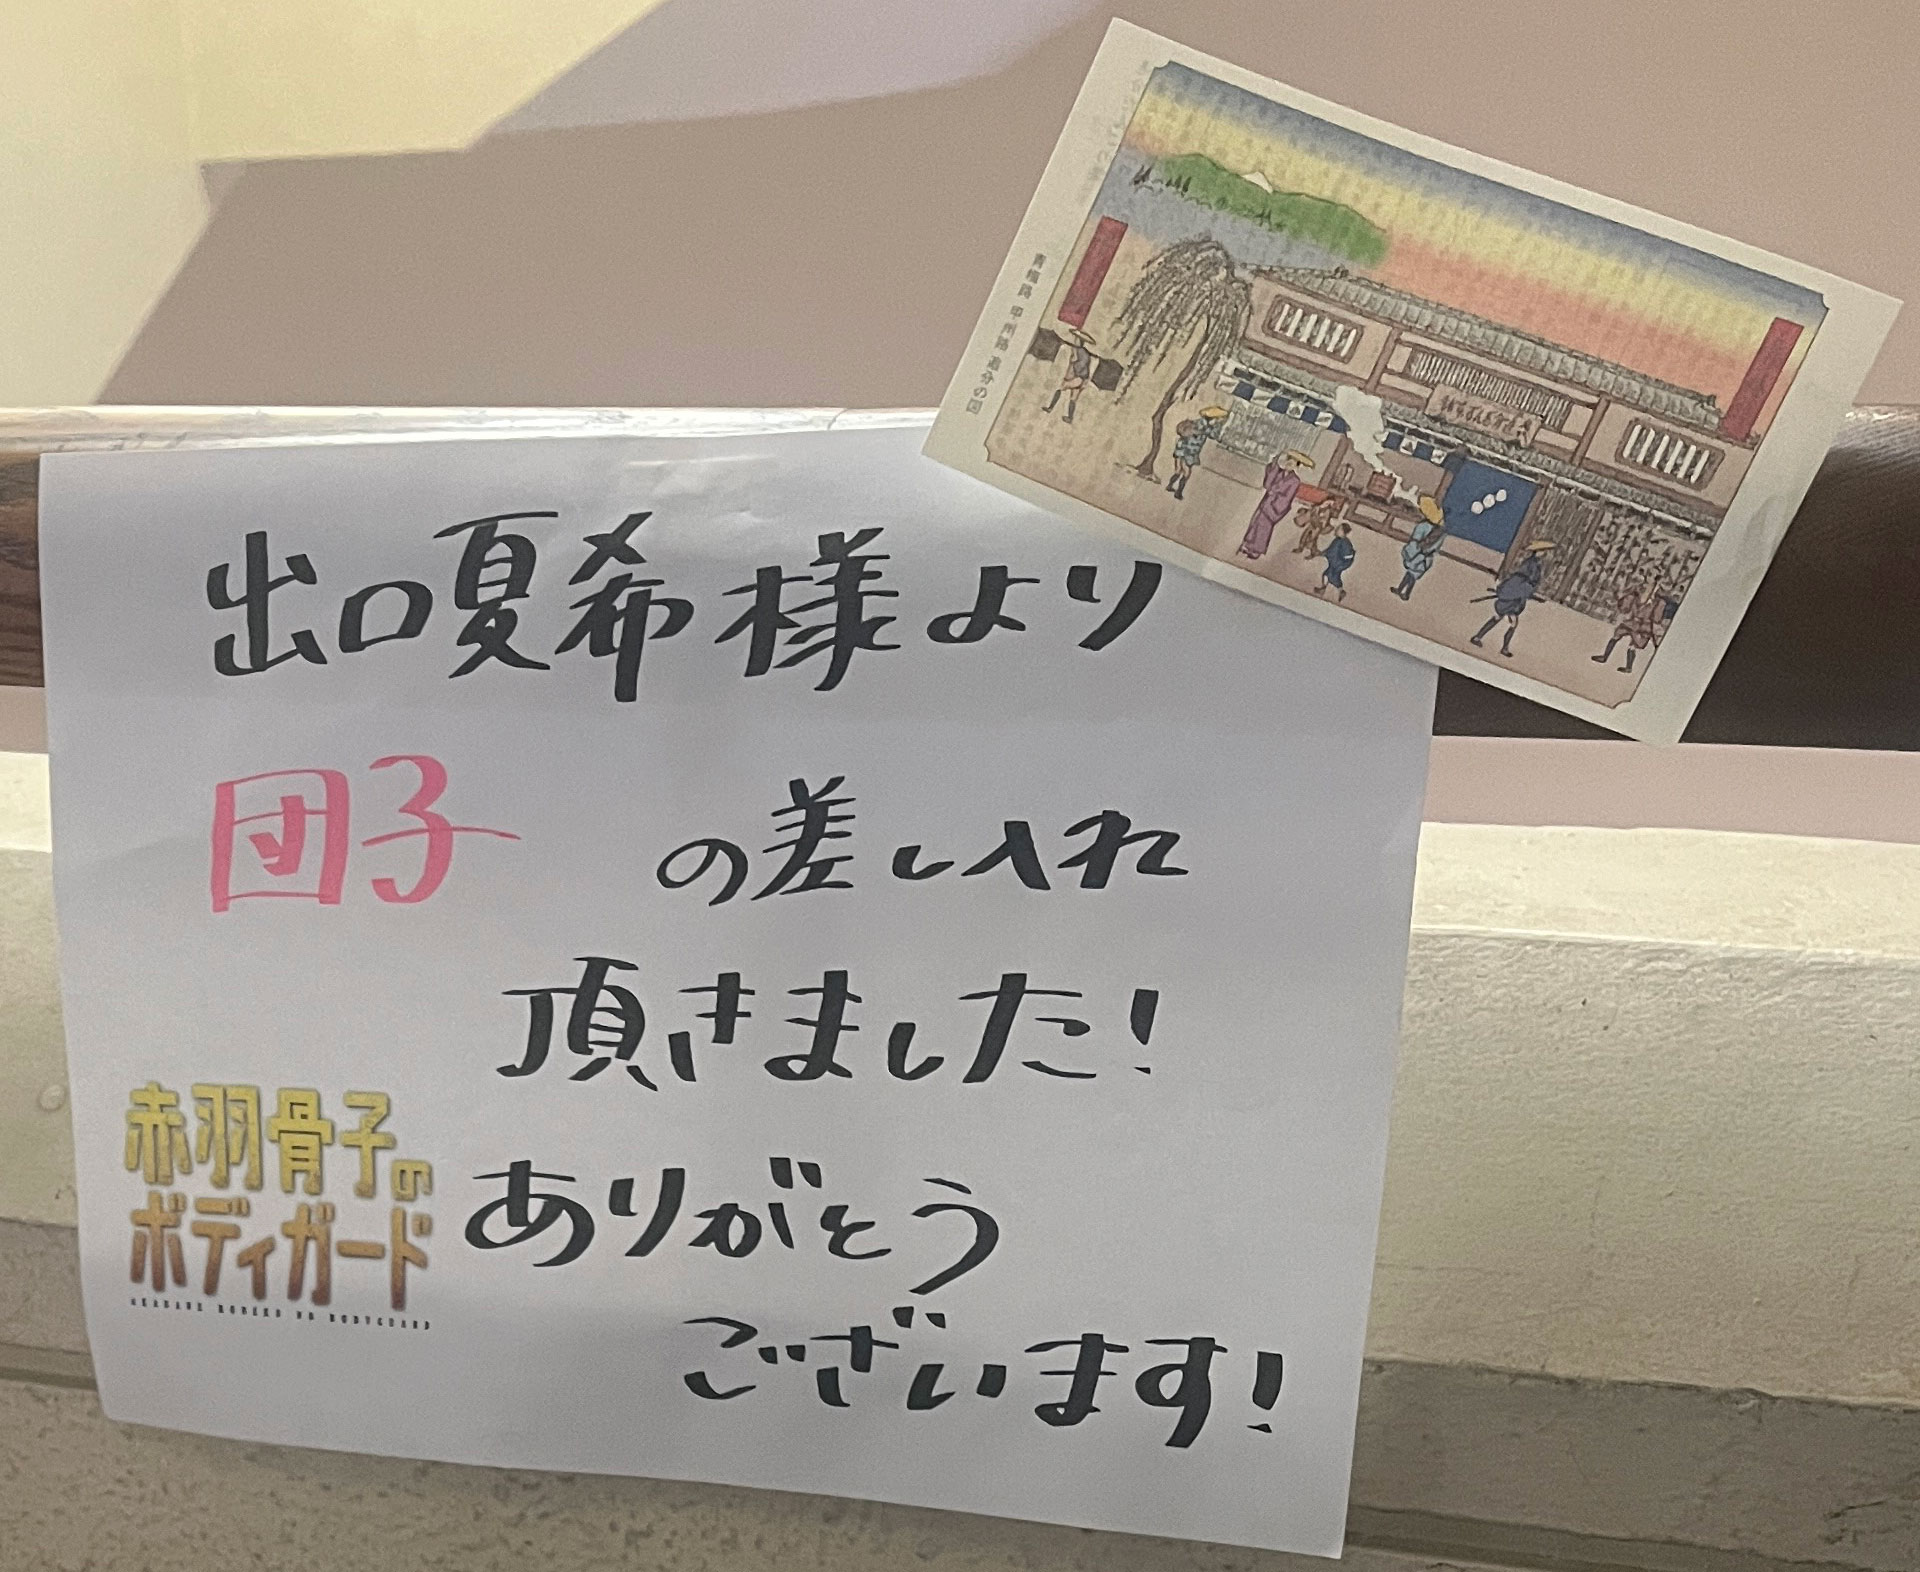 青梅路 甲州路 追分の図
出口夏希様より
団子の差し入れ
頂きました!
ありがとう
ございます!
赤羽骨子の
ボディガード
AKABANE HONEKO NO BODYGUARD